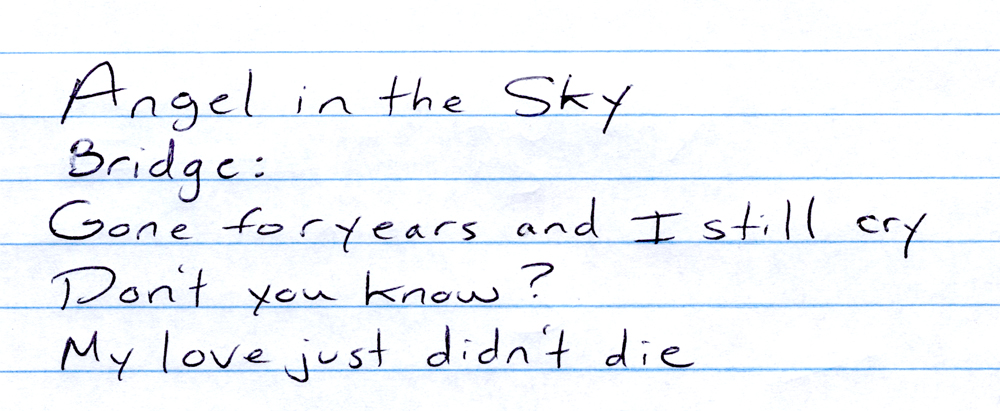 Angel in the Sky
Bridge:
Gone for years and I still cry
Don't you know?
My love just didn't die